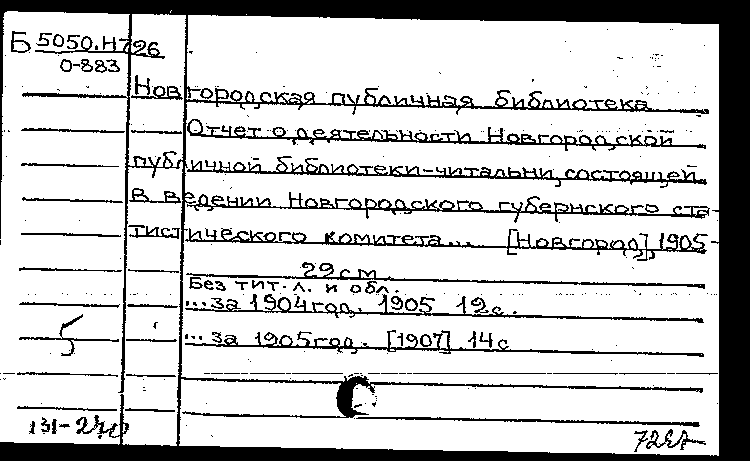 Б 5050.Н726
О-883
Новгородская публичная библиотека
Отчет о деятельности Новгородской
публичной библиотеки-читальни, состоящей
в ведении Новгородского губернского ста-
тистического комитета... [Новгород], 1905-
29 см
Без тит. л. и обл.
...за 1904 год. 1905 12 с.
...за 1905 год. [1907] 14 с
5
131-